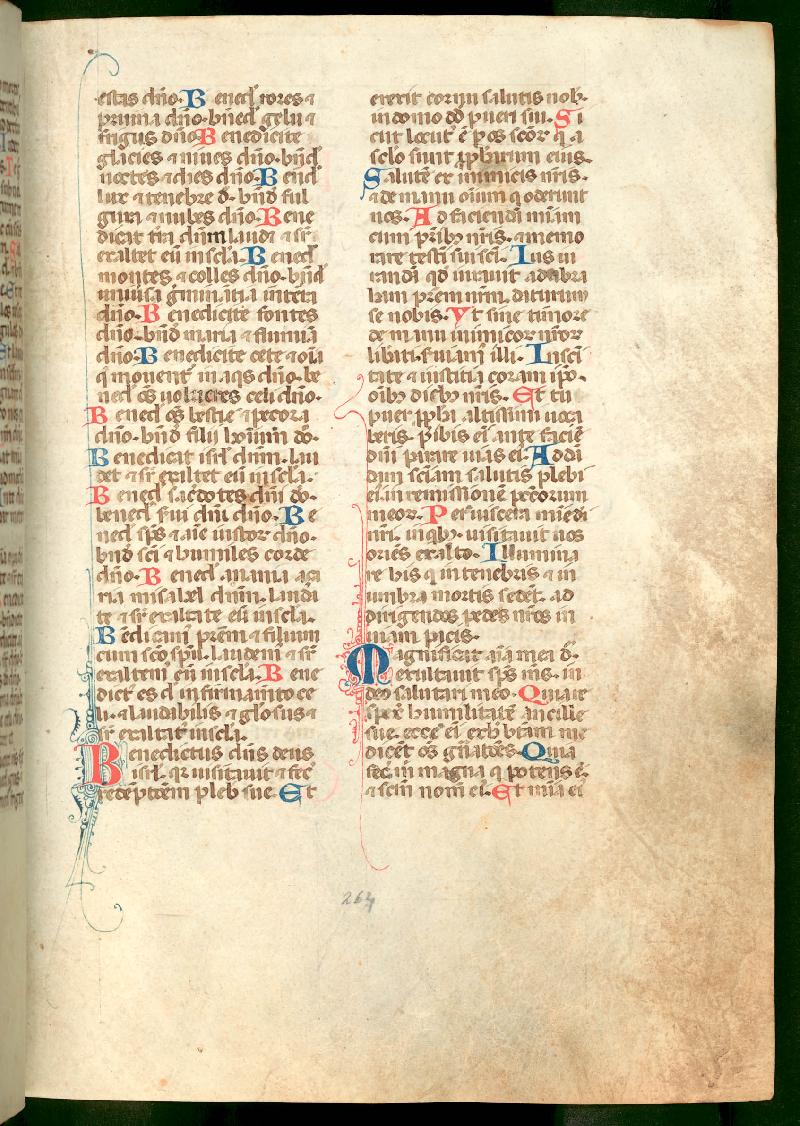 estas dño. Bened rores ⁊
pruina dño. bñed gelu ⁊
frigus dño Benedicite
glacies ⁊ niues dño. bñd
noctes ⁊ dies dño. Bened
lux ⁊ tenebre d. bñd ful
gura ⁊ nubes dño. Bene
dicat tra dñm laudⁱ ⁊ sr̃
exaltet eũ in scła. Bened
montes ⁊ colles dño. bñd
uniũsa g̃minãtia in terra
dño. Benedicite fontes
dño. bñd maria ⁊ flumiã
dño Benedicite cete ⁊ oĩa
q̃ mouent̃ in aqs dño. be
ned oẽs uolucres celi dño.
Bened oẽs bestie ⁊ pecora
dño. bñd filij hoĩum do.
Benedicat isrl dñm. lau
det ⁊ sr̃ exaltet eũ in scła.
Bened sac̃dotes dñi do.
bened s̃ui dñi dño. Be
ned sp̃s ⁊ aĩe iustor dño.
bñd sc̃i ⁊ humiles corde
dño. Bened anania aza
ria misahel dñm. laudã
te ⁊ sr̃ exaltate eũ in scła.
Bẽdicam̃ prẽm ⁊ filium
cum sc̃o sp̃u. laudem̃ ⁊ sr̃
exaltem̃ eũ in scła. Bene
dict es d̃ in firmam̃to ce
li. ⁊ laudabilis ⁊ gl̃osus ⁊
sr̃ exaltat̃ in scła.
Benedictus dñs deus
isrł. qr uisitauit ⁊ fec̃
redẽptõem pleb sue. Et
erexit cornu salutis nob.
in domo dd̃ pueri sui. Si
cut locut̃ ẽ p os sc̃or q̃ a
sclo sunt ꝓphetarum eius.
Salutẽ ex inimicis nr̃is.
⁊ de manu oĩum q oderunt
nos. Ad faciendã m̃iam
cum pr̃ib nr̃is. ⁊ memo
rare testñ sui sc̃i. Ius iu
randũ qd̃ iurauit ad abra
ham prẽm nr̃m. daturum
se nobis. Vt sine timore
de manu inimicor nr̃or
lib̃ati. s̃uiam illi. In sc̃i
tate ⁊ iustitia coram ip̃o.
oĩb dieb nr̃is. Et tu
puer ꝓpha altissimi uoca
beris. p̃ibis eĩ ante faciẽ
dñi parare uias eĩ. Ad dã
dam sc̃iam salutis plebi
eĩ. in remissionẽ pecc̃orum
meor. Per uiscera mĩe di
nr̃i. in qb. uisitauit nos
oriẽs ex alto. Illumina
re his q in tenebris ⁊ in
umbra mortis sedẽt. ad
dirigendos pedes nr̃os in
uiam pacis.
Magnificat aĩa mea d.
et exultauit sp̃s m̃s. in
deo salutari meo. Quia re
spex̃ humilitatẽ ancille
sue. ecce eĩ ex h beãtam me
dicẽt oẽs gñatões. Quia
fec̃ m̃ magna q potens ẽ.
⁊ sc̃m nom̃ eĩ. Et m̃ia eĩ
264